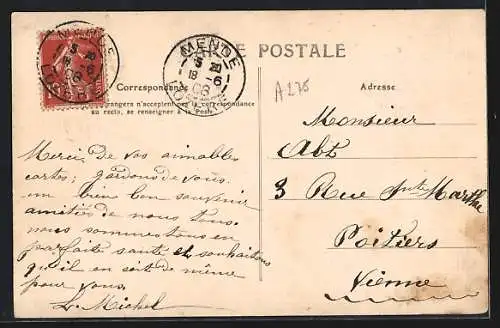 CARTE POSTALE
MENDE
5
18 -6
08
LOZERE
MENDE
18 -6
08
LOZERE
A 276
Correspondance
étrangers n'acceptent pas la correspondance
au recto, se renseigner à la Poste
Adresse
Merci de vos aimables
cartes; gardons de vous
un bien bon souvenir
amitiés de nous tous.
nous sommes tous en
parfaite santé et souhaitons
qu'il en soit de même
pour vous.
L. Michel
Monsieur
Abt
3 Rue Ste Marthe
Poitiers
Vienne